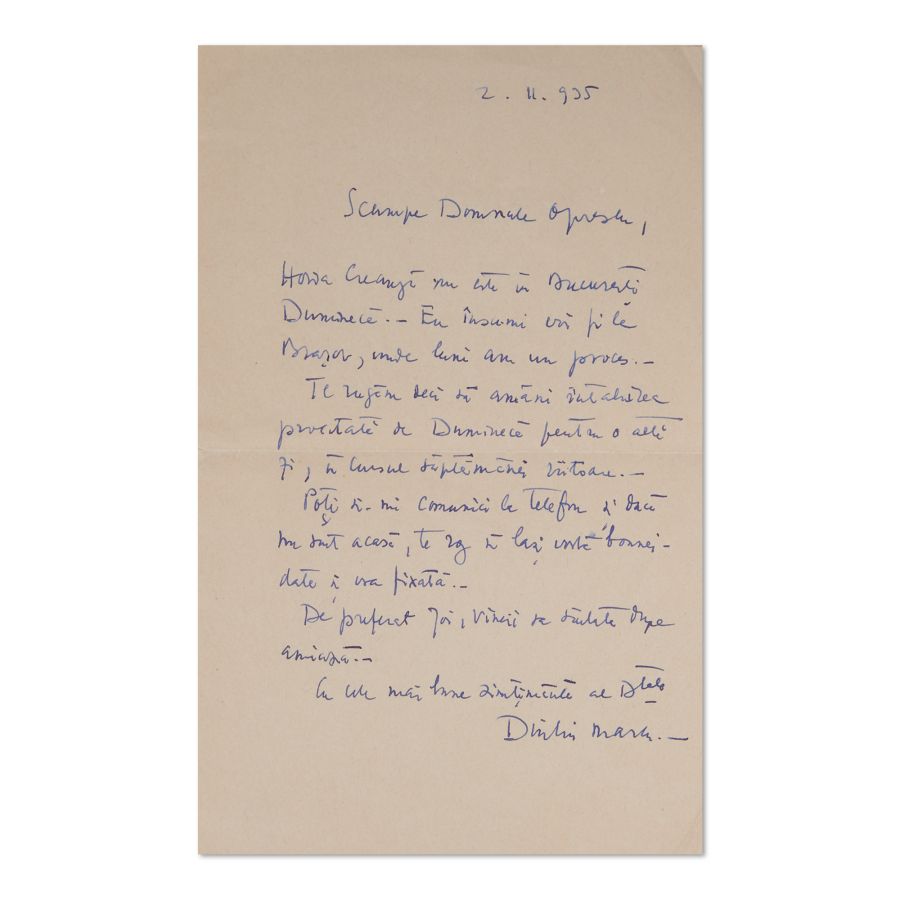 2. II. 935
Scumpe Domnule Oprescu,
Horia Creangă nu este în București
Duminecă.— Eu însumi voi fi la
Brașov, unde luni am un proces.—
Te rugăm deci să amâni întâlnirea
proectată de Duminecă pentru o altă
zi, în cursul săptămânei viitoare.—
Poți să-mi comunici la telefon și dacă
nu sunt acasă, te rog să lași vorbă bonnei-
data și ora fixată.—
De preferat Joi, Vineri sau Sâmbătă după
amiază.—
Cu cele mai bune simțiminte ale Dtale
Marcu.—